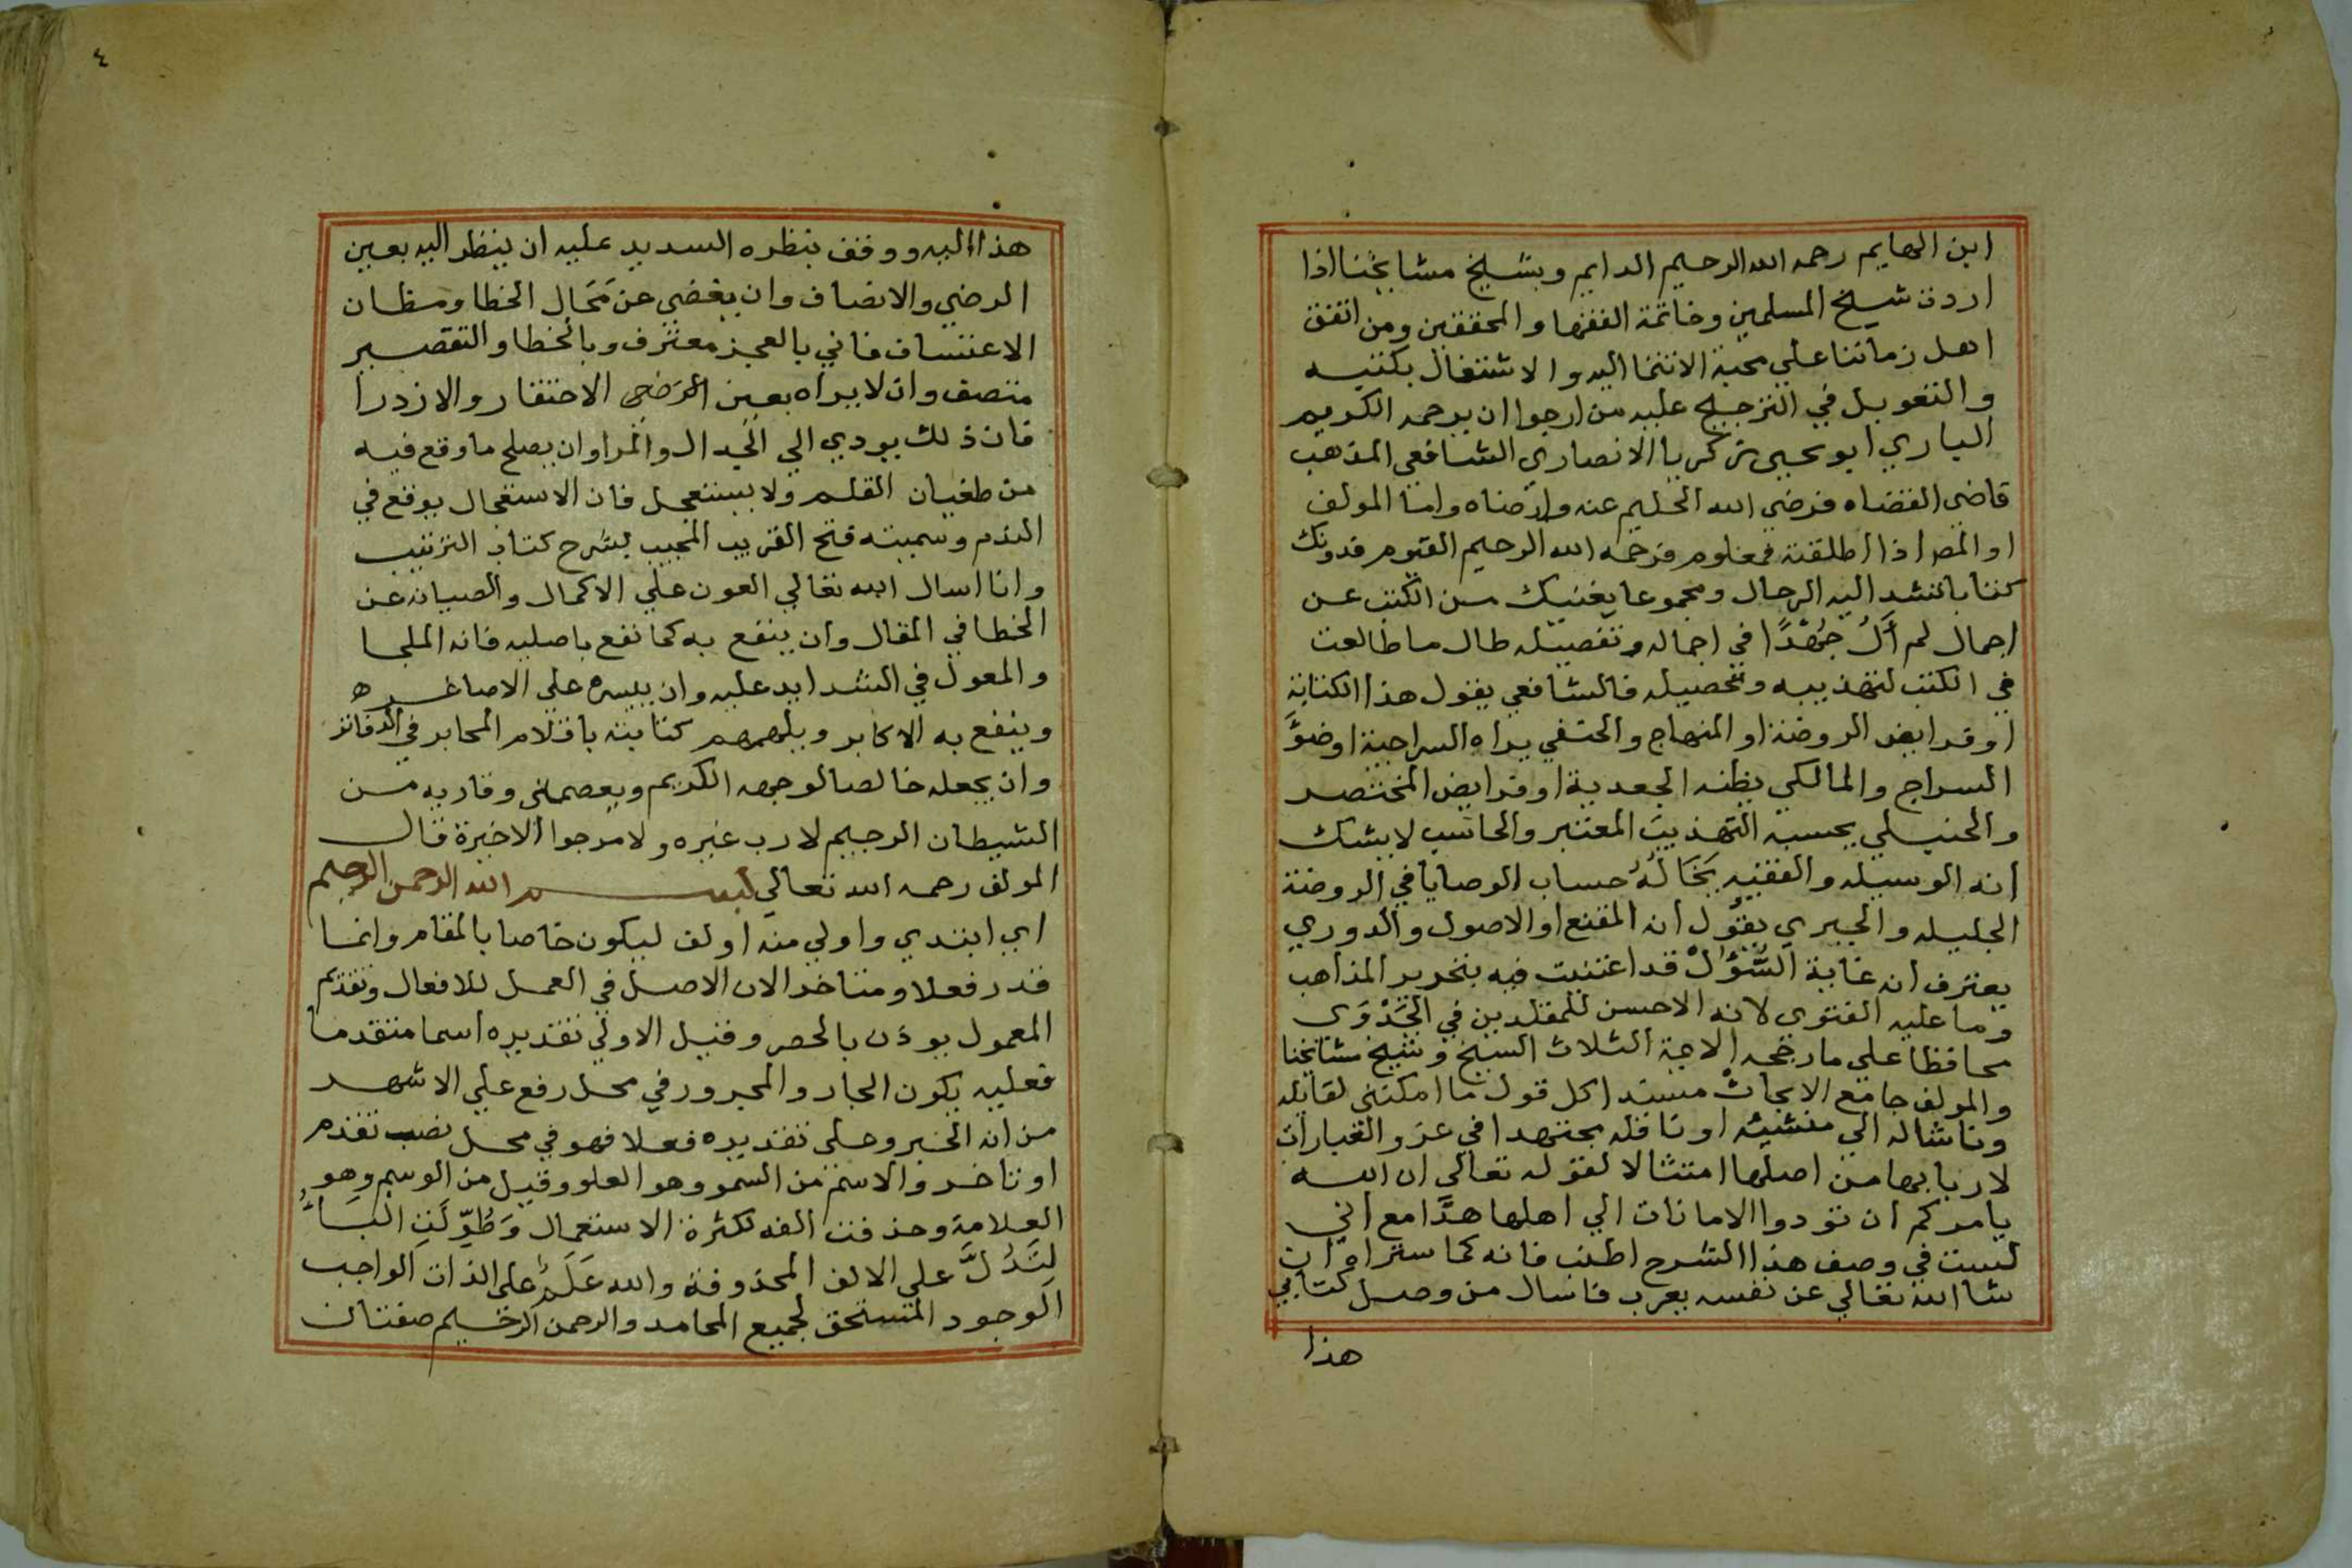 ابن الهايم رحمه الله الرحيم الدايم وبشيخ مشايخنا اذا
اردت شيخ المسلمين وخاتمة الفقها والمحققين ومن اتفق
اهل زماننا علي محبة الانتما اليه والاشتغال بكتبه
والتعويل في الترجيح عليه من ارجوا ان يرحمه الكريم
الباري ابو يحيى زكريا الانصاري الشافعي المذهب
قاضى القضاه فرضي الله الحليم عنه وارضاه واما المولف
او المص اذا اطلقته فمعلوم فرحمه الله الرحيم القيوم فدونك
كتابا تشد اليه الرحال ومجموعا يغنيك من الكتب عن
اجمال لم اَلُ جُهْدًا في اجماله وتفصيله طال ما طالعت
في الكتب لتهذيبه وتحصيله فالشافعي يقول هذا الكفاية
او فرايض الروضة او المنهاج والحنفي يراه السراجية اوضوَّ
السراج والمالكي يظنه الجعدية او فرايض المختصر
والحنبلي يحسبه التهذيبَ المعتبر والحاسب لا يشك
انه الوسيله والفقيه يَخَالُهُ حساب الوصايا في الروضة
الجليله والجبري يقول انه المقنع او الاصول والدوري
يعترف انه غاية السُّؤْلْ قد اعتنيت فيه بتحرير المذاهب
وما عليه الفتوى لانه الاحسن للمقلدين في الجَدْوَى
محافظا علي ما رجحه الايمة الثلاث الشيخ وشيخ مشايخنا
والمولف جامع الابحاث مسندا كل قول ما امكنني لقايله
وناشاله الي منشيئه او ناقله مجتهدا في عزو العبارات
لاربابها من اصلها امتثالا لقوله تعالي ان الله
يامركم ان تودوا الامانات الي اهلها هذا مع اني
لست في وصف هذا الشرح اطنب فانه كما ستراه ان
شا الله تعالي عن نفسه يعرب فاسال من وصل كتابي
هذا
٤
هذا اليه ووقف بنظره السديد عليه ان ينظر اليه بعين
الرضي والانصاف وان يغضي عن مَحَال الخطا ومظان
الاعتساف فاني بالعجز معترف وبالخطا والتقصير
متصف وان لا يراه بعين الاحتقار والازدرا
فان ذلك يودي الي الجدال والمرا وان يصلح ما وقع فيه
من طغيان القلم ولا يستعجل فان الاستعجال يوقع في
الندم وسميته فتح القريب المجيب بشرح كتاب الترتيب
وانا اسال الله تعالي العون علي الاكمال والصيانه عن
الخطا في المقال وان ينفع به كما نفع باصليه فانه الملجا
والمعول في الشدايد عليه وان ييسره علي الاصاغر
وينفع به الاكابر ويلهمهم كتابته باقلام المحابر في الدفاتر
وان يجعله خالصا لوجهه الكريم ويعصمني وقاريه من
الشيطان الرجيم لا رب غيره ولا مرجوا الا خيرة قال
المولف رحمه الله تعالي بسم الله الرحمن الرحيم
اي ابتدي واولي منه اولف ليكون خاصا بالمقام وانما
قدر فعلا ومتاخرا لان الاصل في العمل للافعال وتقديم
المعمول يوذن بالحصر وقيل الاولي تقديره اسما متقدما
فعليه يكون الجار والمجرور في محل رفع علي الاشهر
من انه الخبر وعلى تقديره فعلا فهو في محل نصب تقدم
او تاخر والاسم من السمو وهو العلو وقيل من الوسم وهو
العلامة وحذفت الفه لكثرة الاستعمال وَطُوِّلَتِ البَاءُ
لِتَدُلَّ علي الالف المحذوفة والله عَلَمٌ على الذات الواجب
الوجود المستحق لجميع المحامد والرحمن الرحيم صفتان